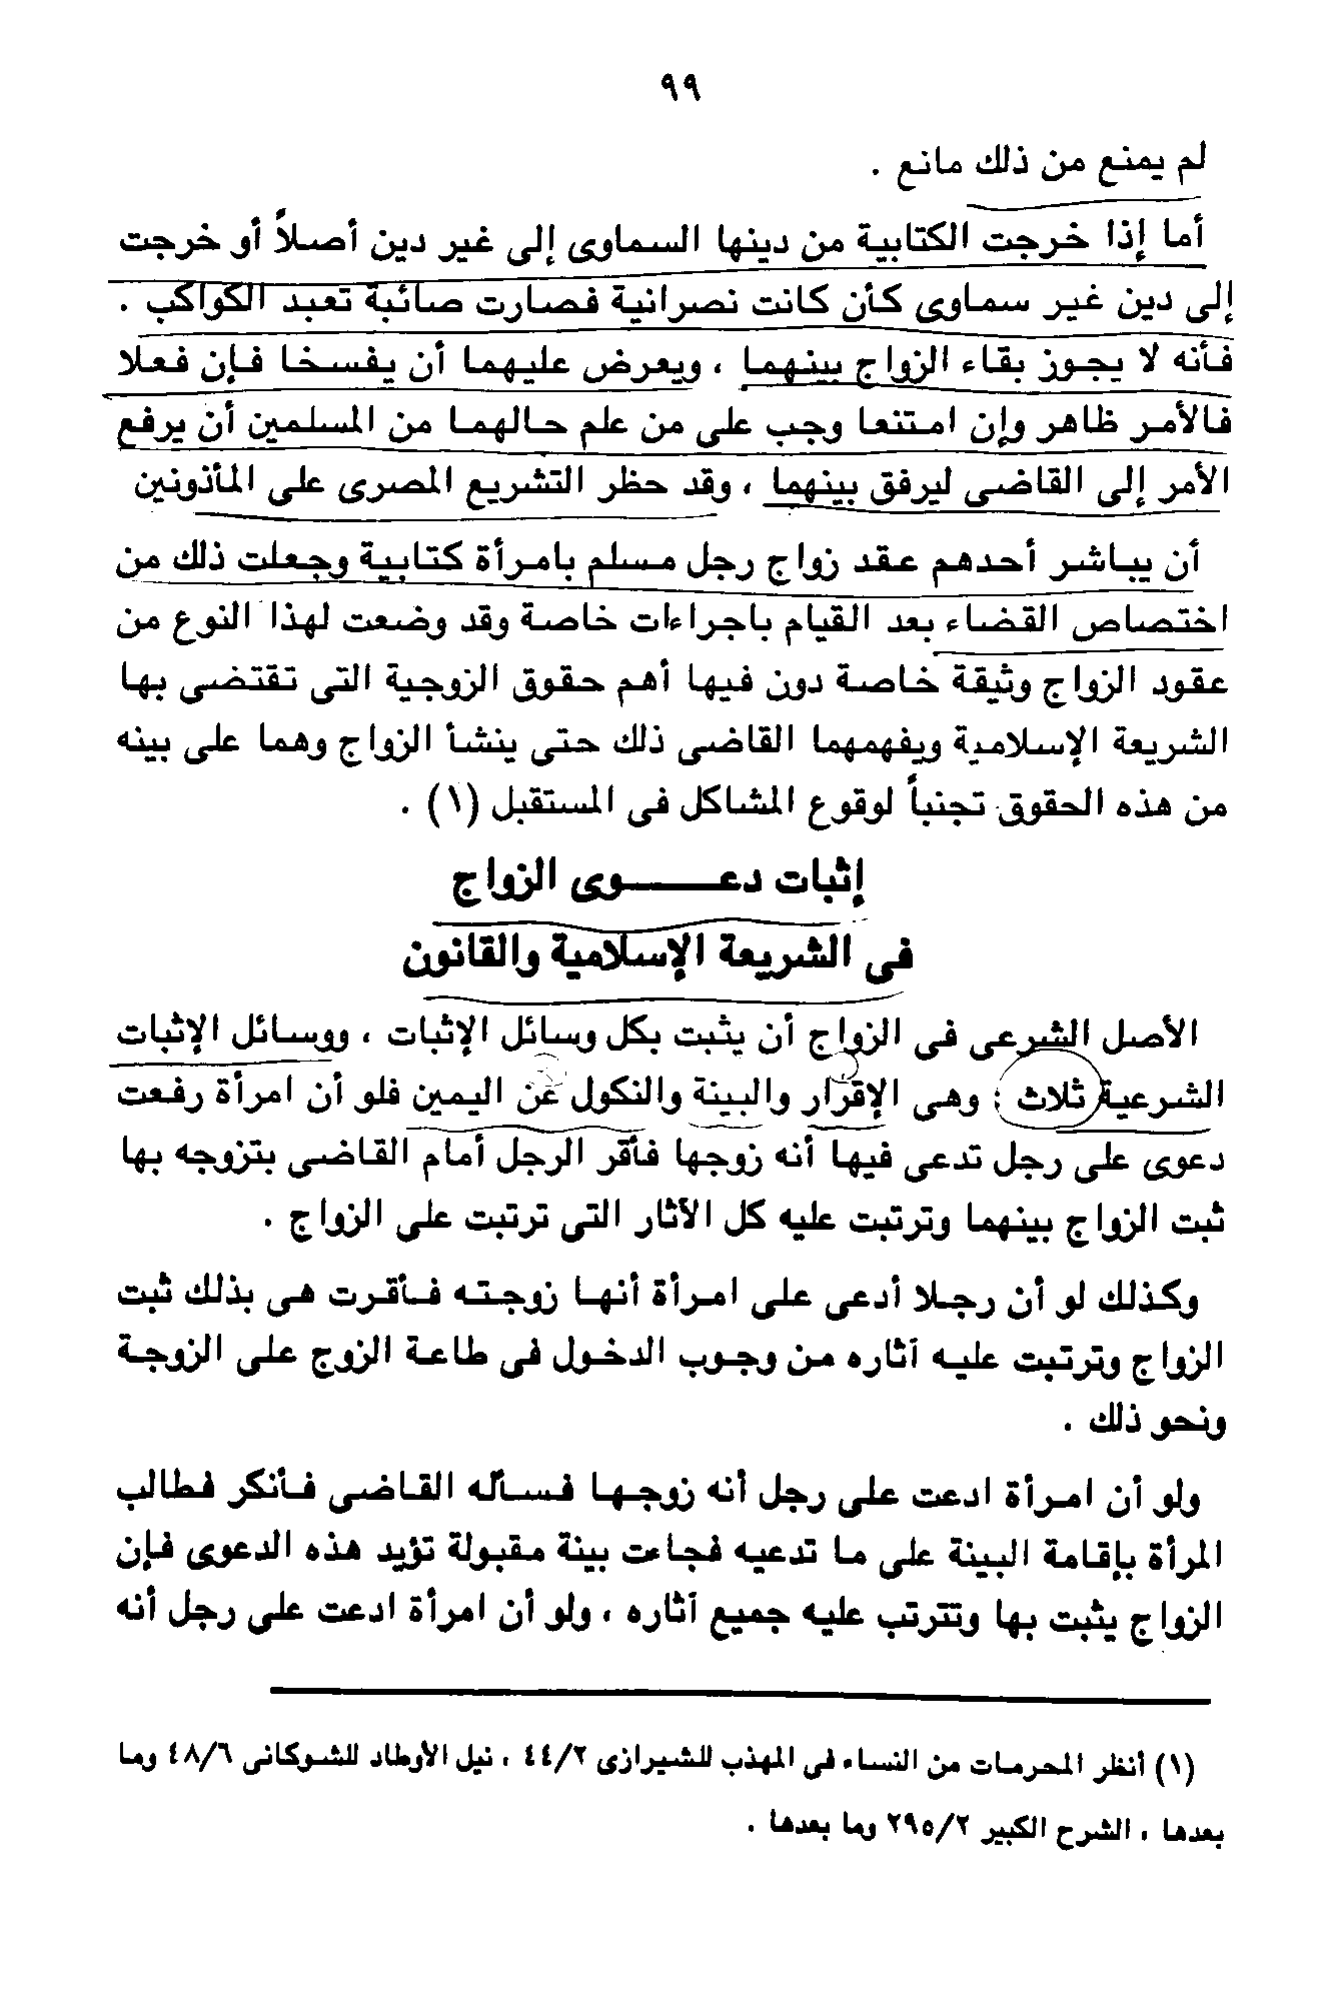 ٩٩
لم يمنع من ذلك مانع .
أما إذا خرجت الكتابية من دينها السماوى إلى غير دين أصلاً أو خرجت
إلى دين غير سماوى كأن كانت نصرانية فصارت صائبة تعبد الكواكب .
فأنه لا يجوز بقاء الزواج بينهما ، ويعرض عليهما أن يفسخا فإن فعلا
فالأمر ظاهر وإن امتنعا وجب على من علم حالهما من المسلمين أن يرفع
الأمر إلى القاضى ليرفق بينهما ، وقد حظر التشريع المصرى على المأذونين
أن يباشر أحدهم عقد زواج رجل مسلم بامرأة كتابية وجعلت ذلك من
اختصاص القضاء بعد القيام باجراءات خاصة وقد وضعت لهذا النوع من
عقود الزواج وثيقة خاصة دون فيها أهم حقوق الزوجية التى تقتضى بها
الشريعة الإسلامية ويفهمهما القاضى ذلك حتى ينشأ الزواج وهما على بينه
من هذه الحقوق تجنباً لوقوع المشاكل فى المستقبل (١) .
إثبات دعـــــوى الزواج
فى الشريعة الإسلامية والقانون
الأصل الشرعى فى الزواج أن يثبت بكل وسائل الإثبات ، ووسائل الإثبات
الشرعية ثلاث : وهى الإقرار والبينة والنكول عن اليمين فلو أن امرأة رفعت
دعوى على رجل تدعى فيها أنه زوجها فأقر الرجل أمام القاضى بتزوجه بها
ثبت الزواج بينهما وترتبت عليه كل الآثار التى ترتبت على الزواج .
وكذلك لو أن رجلا أدعى على امرأة أنها زوجته فأقرت هى بذلك ثبت
الزواج وترتبت عليه آثاره من وجوب الدخول فى طاعة الزوج على الزوجة
ونحو ذلك .
ولو أن امرأة ادعت على رجل أنه زوجها فسأله القاضى فأنكر فطالب
المرأة بإقامة البينة على ما تدعيه فجاءت بينة مقبولة تؤيد هذه الدعوى فإن
الزواج يثبت بها وتترتب عليه جميع آثاره ، ولو أن امرأة ادعت على رجل أنه
(١) أنظر المحرمات من النساء فى المهذب للشيرازى ٤٤/٢ ، نيل الأوطاد للشوكانى ٤٨/٦ وما
بعدها ، الشرح الكبير ٢٩٥/٢ وما بعدها .